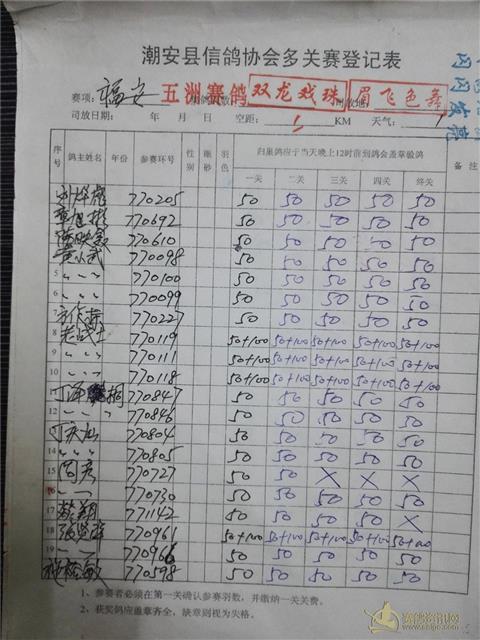 潮安县信鸽协会多关赛登记表
赛项: 福安 五洲赛鸽 双龙戏珠 眉飞色舞
司放日期: 年 月 日 空距: KM 天气:
序号 鸽主姓名 年份 参赛环号 性别 眼砂 羽色 归巢鸽应于当天晚上12时前到鸽会盖章验鸽 备注
一关 二关 三关 四关 终关
770205 50 50 50 50 50
770692 50 50 50 50 50
770610 50 50 50 50 50
770098 50 50 50 50 50
5 〃 〃 770100 50 50 50 50 50
6 〃 〃 770099 50 50 50 50 50
7 770227 50 50 50 50 50
8 老战士 770119 50+100 50+100 50+100 50+100 50+100
9 〃 〃 770111 50+100 50+100 50+100 50+100 50+100
10 〃 〃 770118 50+100 50+100 50+100 50+100 50+100
11 丁泽桐 770847 50 50 50 50 50
12 〃 〃 770846 50 50 50 50 50
丁天灿 770804 50 50 50 50 50
14 〃 〃 770805 50 50 50 50 50
15 770727 50 50 X X X
16 〃 770730 50 50 50 50 50
17 蔡翔 771142 50 50 50 50 X
18 770961 50+100 50+100 50+100 50+100 50+100
19 〃 〃 770966 50 50 50 50 50
770598 50 50 50 50 50
1、参赛者必须在第一关确认参赛羽数，并缴纳一关关费。
2、获奖鸽应盖章齐全，缺章则视为失格。